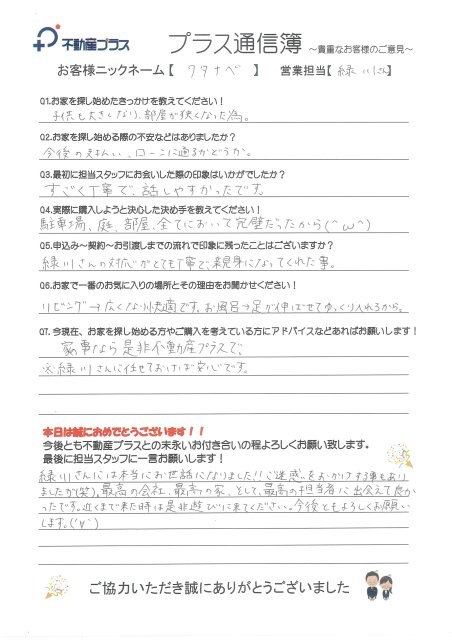 不動産プラス プラス通信簿 ～貴重なお客様のご意見～
お客様ニックネーム【 ワタナベ 】 営業担当【 緑川さん 】
Q1.お家を探し始めたきっかけを教えてください！
子供も大きくなり、部屋が狭くなった為。
Q2.お家を探し始める際の不安などはありましたか？
今後の支払い、ローンに通るかどうか。
Q3.最初に担当スタッフにお会いした際の印象はいかがでしたか？
すごく丁寧で、話しやすかったです。
Q4.実際に購入しようと決心した決め手を教えてください！
駐車場、庭、部屋、全てにおいて完璧だったから(^ω^)
Q5.申込み～契約～お引渡しまでの流れで印象に残ったことはございますか？
緑川さんの対応がとても丁寧で、親身になってくれた事。
Q6.お家で一番のお気に入りの場所とその理由をお聞かせください！
リビング→広くなり快適です。お風呂→足が伸ばせてゆっくり入れるから。
Q7.今現在、お家を探し始める方やご購入を考えている方にアドバイスなどあればお願いします！
家事なら是非不動産プラスで。
※緑川さんに任せておけば安心です。
本日は誠におめでとうございます！！
今後とも不動産プラスとの末永いお付き合いの程よろしくお願い致します。
最後に担当スタッフに一言お願いします！
緑川さんには本当にお世話になりました!!ご迷惑をおかけする事もあり
ましたが(笑)、最高の会社、最高の家、そして、最高の担当者に出会えて良か
ったです。近くまで来た時は是非遊びに来てください。今後ともよろしくお願い
します。(^∀^)
ご協力いただき誠にありがとうございました